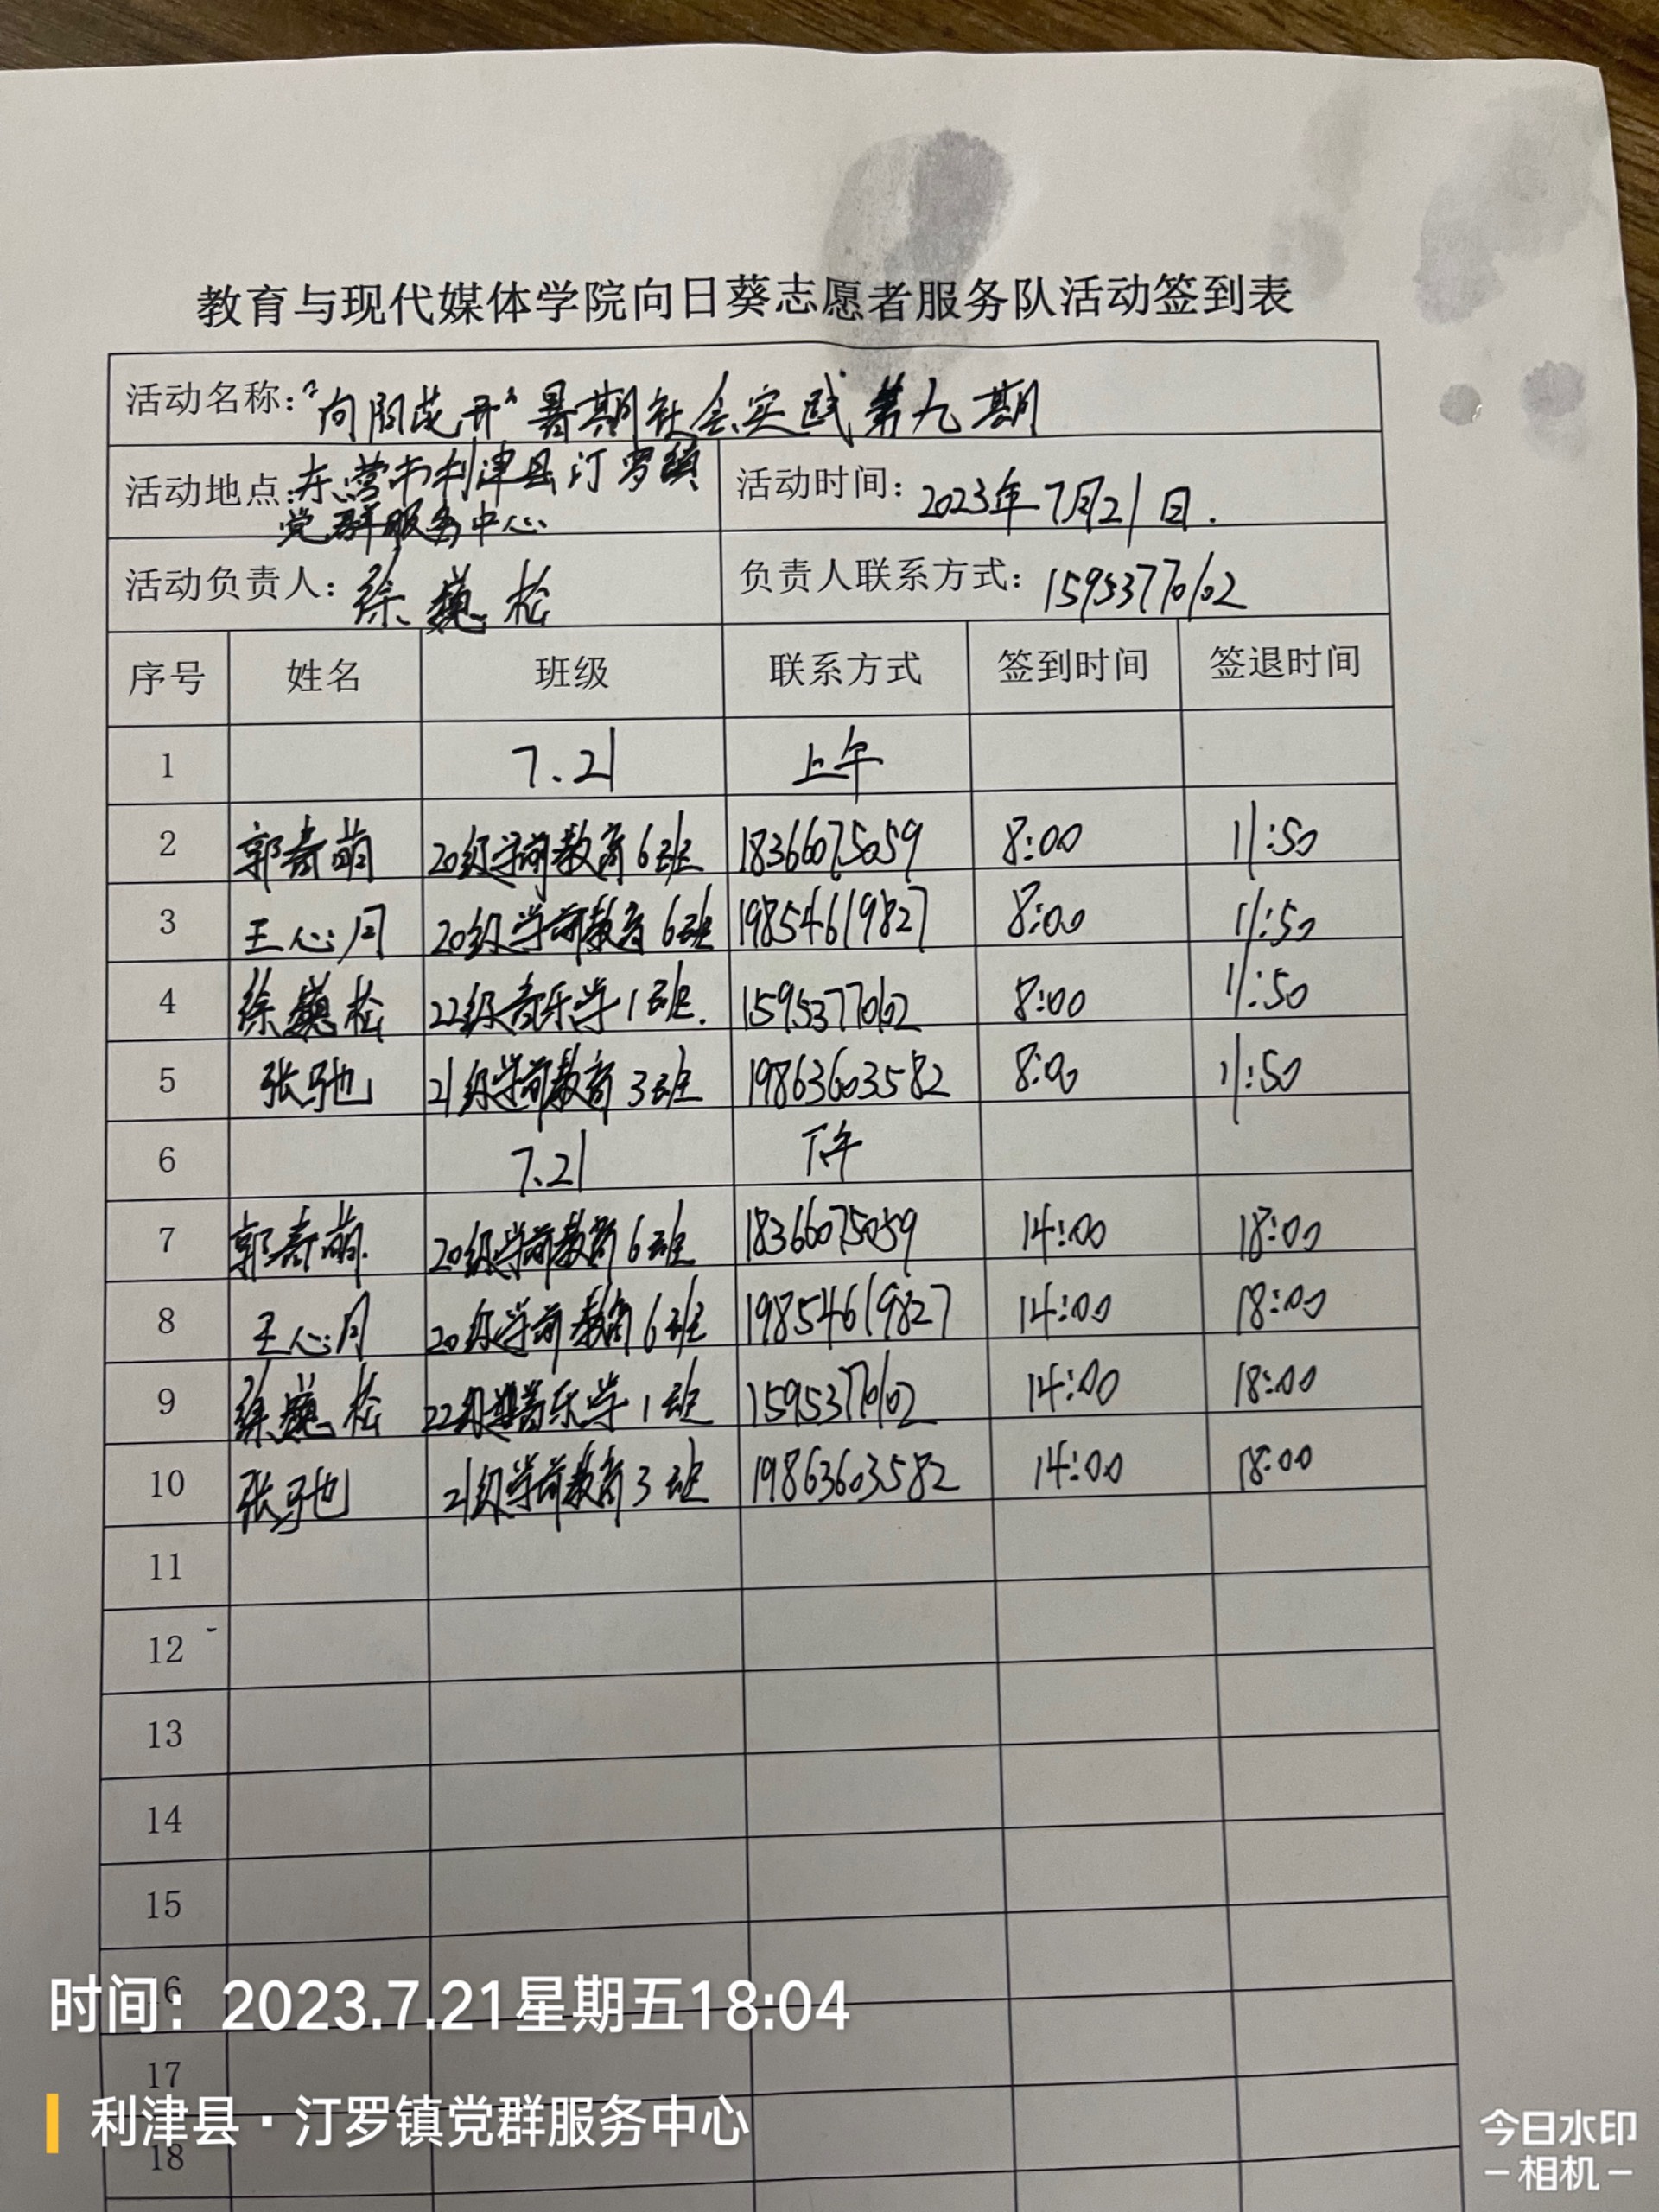 教育与现代媒体学院向日葵志愿者服务队活动签到表
活动名称：“向阳花开”暑期社会实践第九期
活动地点：东营市利津县汀罗镇
党群服务中心
活动时间：2023年7月21日.
活动负责人：徐巍松
负责人联系方式：15953770102
序号 姓名 班级 联系方式 签到时间 签退时间
1 7.21 上午
2 郭寿萌 20级学前教育6班 18366075059 8:00 11:50
3 王心月 20级学前教育6班 19854619827 8:00 11:50
4 徐巍松 22级音乐学1班. 15953770102 8:00 11:50
5 张驰 21级学前教育3班 19863603582 8:00 11:50
6 7.21 下午
7 郭寿萌. 20级学前教育6班 18366075059 14:00 18:00
8 王心月 20级学前教育6班 19854619827 14:00 18:00
9 徐巍松 22级音乐学1班 15953770102 14:00 18:00
10 张驰 21级学前教育3班 19863603582 14:00 18:00
11
12
13
14
15
16
时间：2023.7.21星期五18:04
17
利津县·汀罗镇党群服务中心
18
今日水印
-相机-